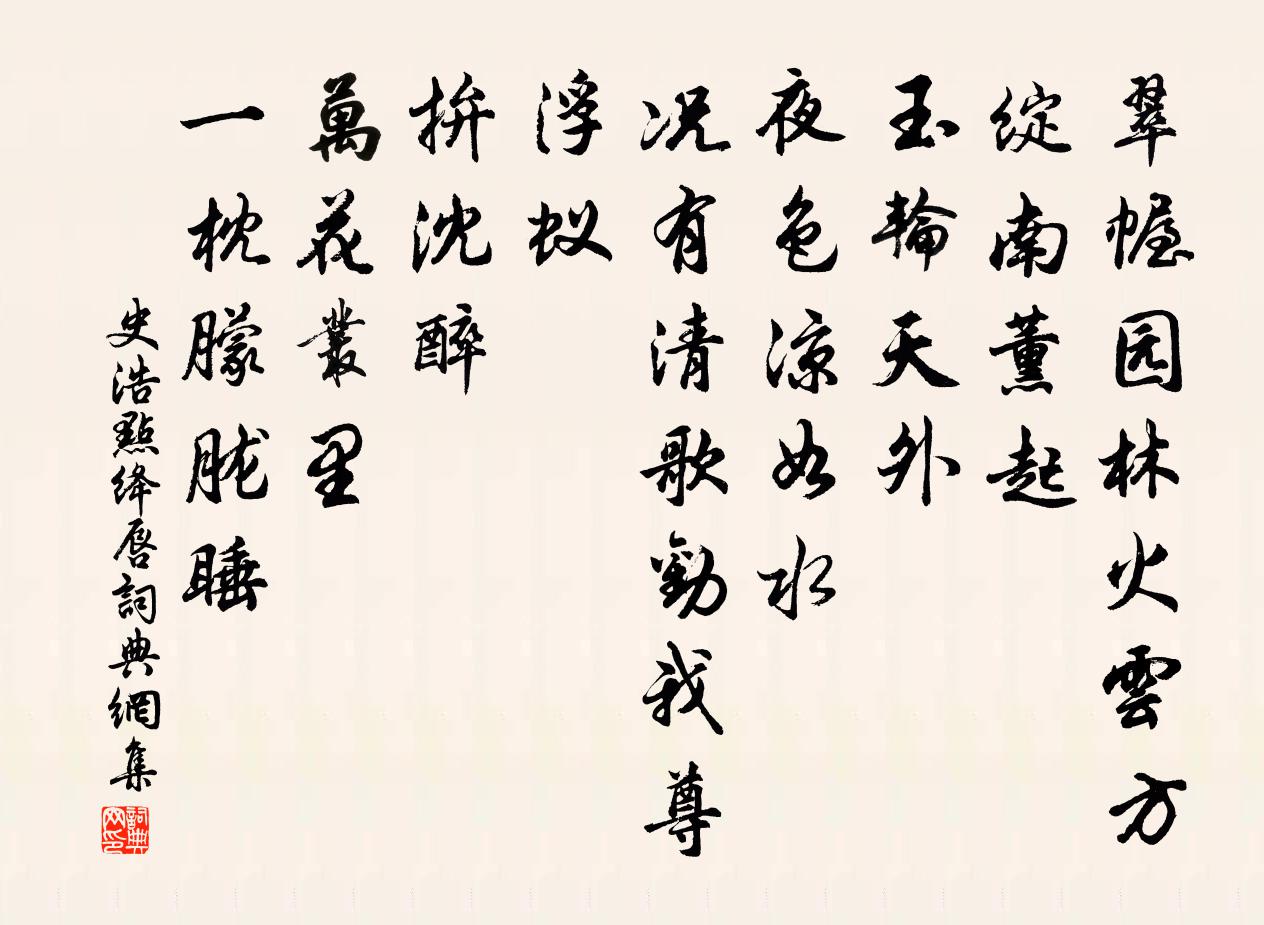 翠幄园林火雲方
綻南薰起
玉輪天外
夜色凉如水
况有清歌勸我尊
浮蚁
拚沈醉
萬花叢里
一枕朦胧睡
史浩點绛唇詞典網集
詞典网印